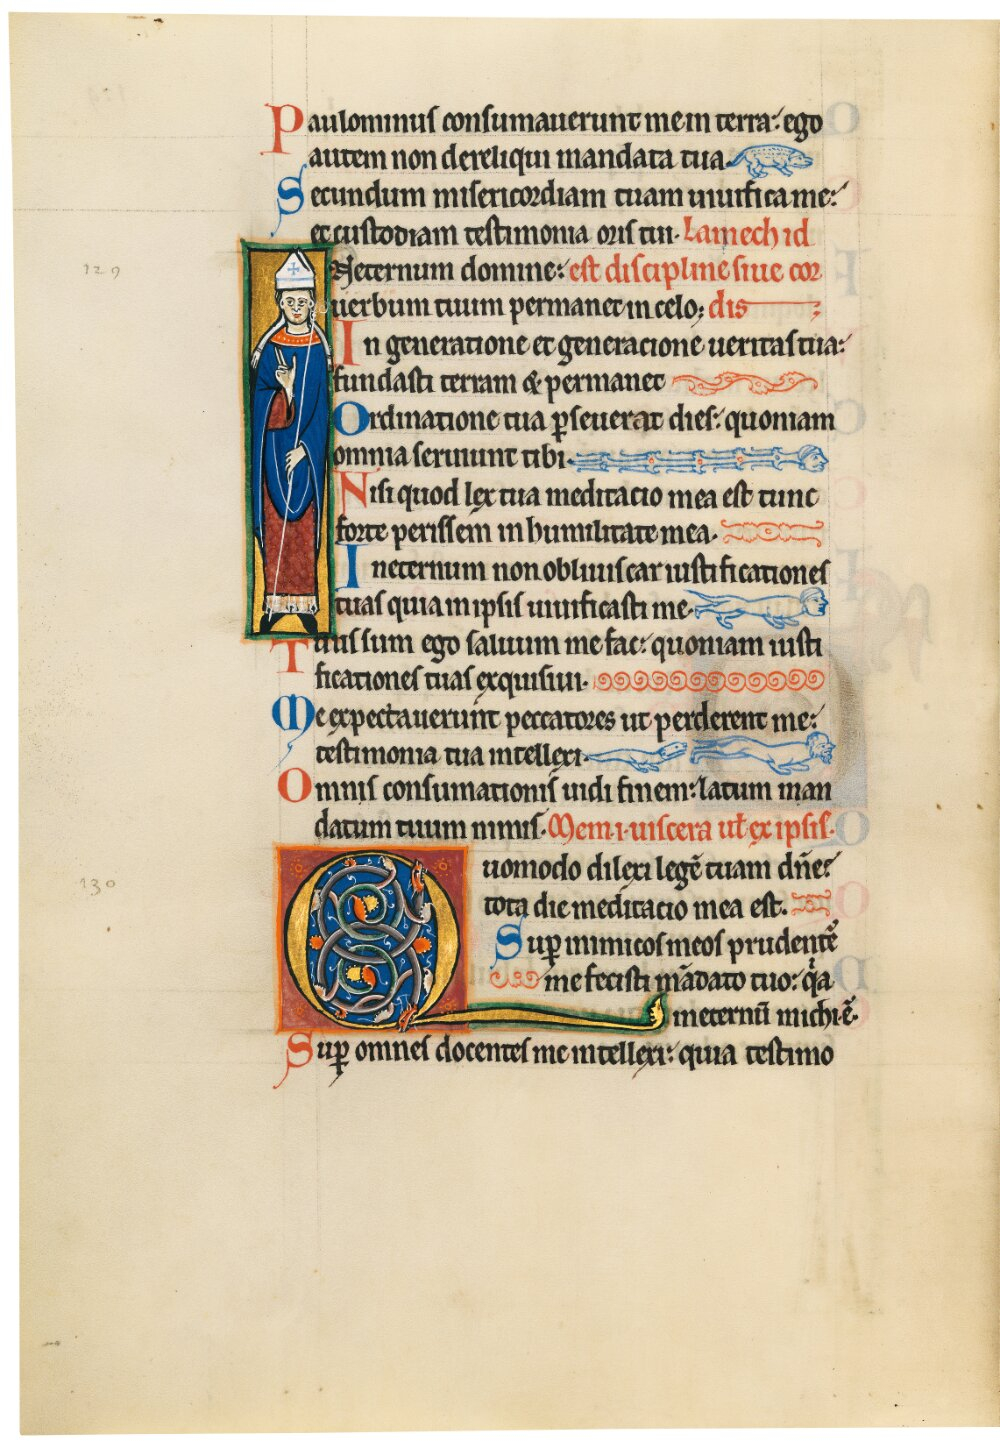 Paulominus consumauerunt me in terra: ego
autem non dereliqui mandata tua.
Secundum misericordiam tuam uiuifica me:
et custodiam testimonia oris tui. Lamech id
Neternum domine: est discipline siue cor
uerbum tuum permanet in celo; dis
In generatione et generacione ueritas tua:
fundasti terram & permanet
Ordinatione tua ꝑseuerat dies: quoniam
omnia seruiunt tibi.
Nisi quod lex tua meditacio mea est tunc
forte perissem in humilitate mea.
In eternum non obliuiscar iustificationes
tuas quia in ipsis uiuificasti me.
Tuus sum ego saluum me fac: quoniam iusti
ficationes tuas exquisiui.
Me expectauerunt peccatores ut perderent me:
testimonia tua intellexi.
Omnis consumationis uidi finem: latum man
datum tuum nimis. Mem .i. uiscera uł ex ipsis.
Quomodo dilexi legē tuam dn̄e:
tota die meditacio mea est.
Suꝑ inimicos meos prudentē
me fecisti mādato tuo: qͥa
in eternū michi ē.
Suꝑ omnes docentes me intellexi: quia testimo
129
130